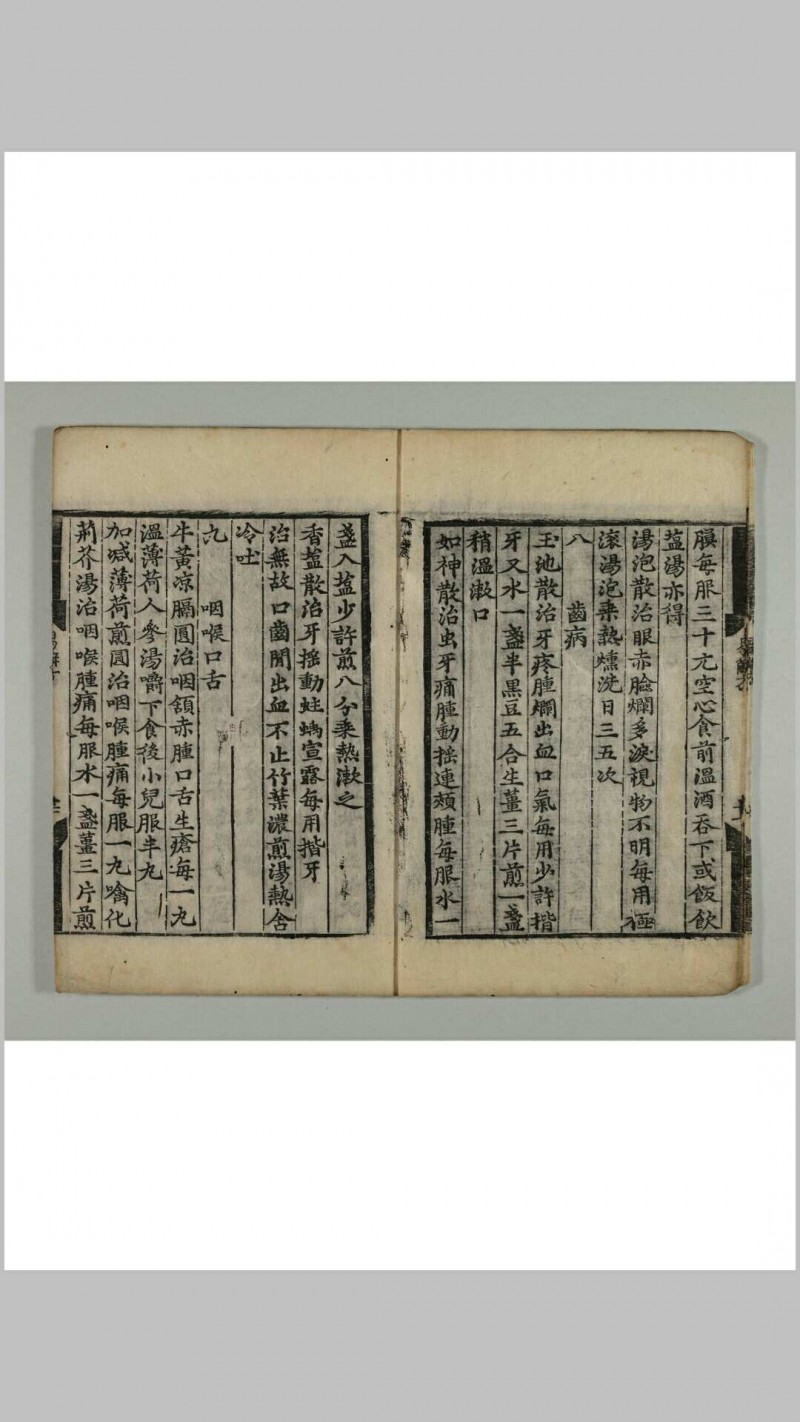 膜每服三十丸空心食前溫酒吞下或飯飲
塩湯亦得
湯泡散治眼赤瞼爛多淚視物不明每用極
滾湯泡乗熱燻洗日三五次
八　齒病
玉池散治牙疼腫爛出血口氣每用少許揩
牙又水一盞半黑豆五合生薑三片煎一盞
稍溫漱口
如神散治虫牙痛腫動搖連頰腫每服水一
盞入塩少許煎八分乗熱漱之
香塩散治牙搖動蛀螞宣露每用揩牙
治無故口齒間出血不止竹葉濃煎湯熱含
冷吐
九　咽喉口舌
牛黃凉膈圓治咽頷赤腫口舌生瘡每一丸
溫薄荷人參湯嚼下食後小兒服半丸
加減薄荷煎圓治咽喉腫痛每服一丸噙化
荊芥湯治咽喉腫痛每服水一盞薑三片煎